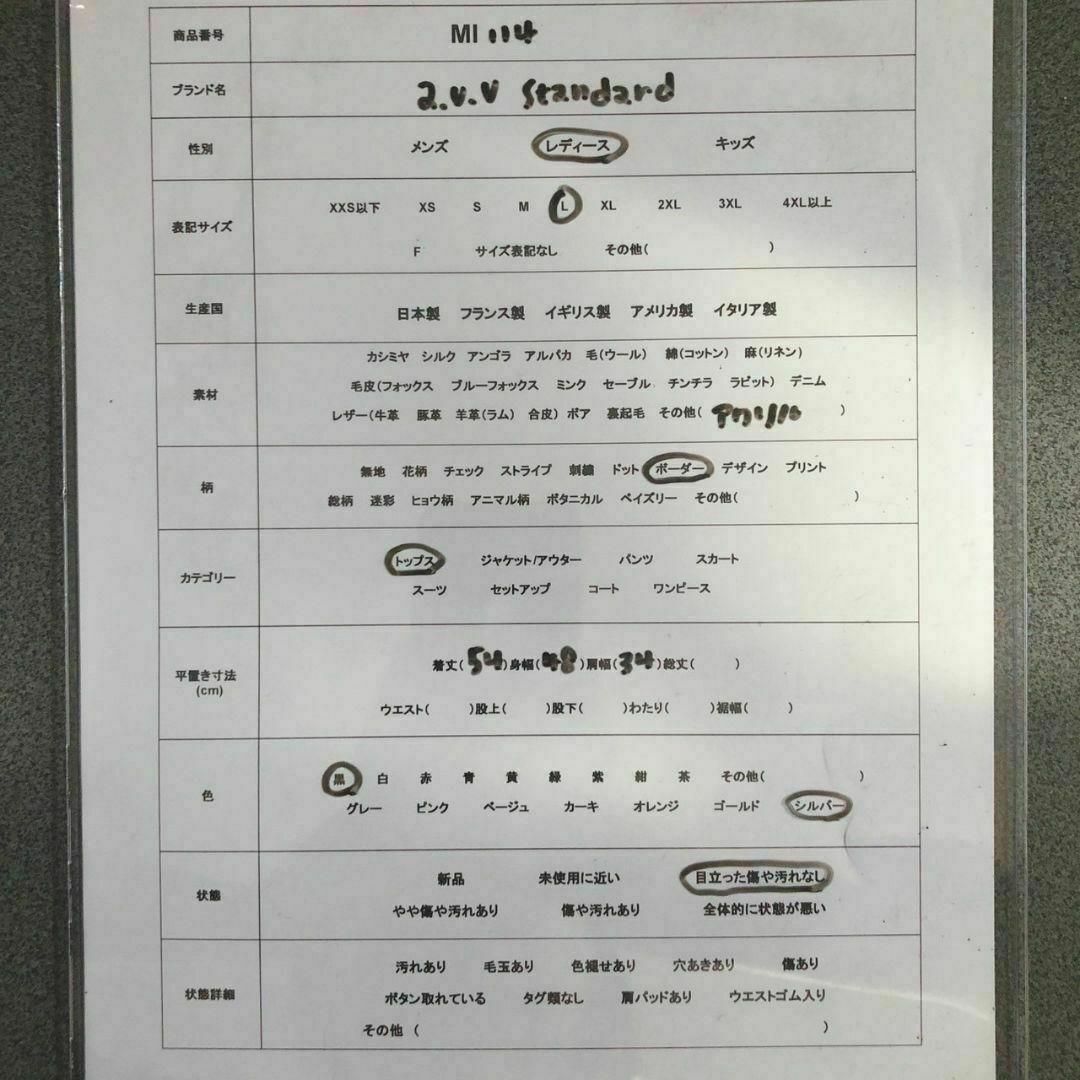 商品番号 MI 114
ブランド名 a.v.v Standard
性別 メンズ レディース キッズ
表記サイズ XXS以下 XS S M L XL 2XL 3XL 4XL以上
F サイズ表記なし その他( )
生産国 日本製 フランス製 イギリス製 アメリカ製 イタリア製
カシミヤ シルク アンゴラ アルパカ 毛(ウール) 綿(コットン) 麻(リネン)
素材 毛皮(フォックス ブルーフォックス ミンク セーブル チンチラ ラビット) デニム
レザー(牛革 豚革 羊革(ラム) 合皮) ボア 裏起毛 その他( アクリル )
柄 無地 花柄 チェック ストライプ 刺繍 ドット ボーダー デザイン プリント
総柄 迷彩 ヒョウ柄 アニマル柄 ボタニカル ペイズリー その他( )
カテゴリー トップス ジャケット/アウター パンツ スカート
スーツ セットアップ コート ワンピース
平置き寸法 着丈( 54 )身幅( 48 )肩幅( 34 )総丈( )
(cm) ウエスト( )股上( )股下( )わたり( )裾幅( )
色 黒 白 赤 青 黄 緑 紫 紺 茶 その他( )
グレー ピンク ベージュ カーキ オレンジ ゴールド シルバー
状態 新品 未使用に近い 目立った傷や汚れなし
やや傷や汚れあり 傷や汚れあり 全体的に状態が悪い
汚れあり 毛玉あり 色褪せあり 穴あきあり 傷あり
状態詳細 ボタン取れている タグ類なし 肩パッドあり ウエストゴム入り
その他 ( )